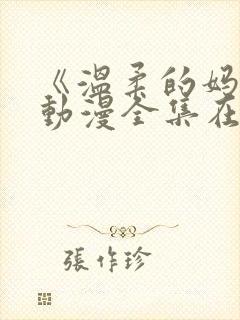 《溫柔的媽
動漫全集在
張作珍